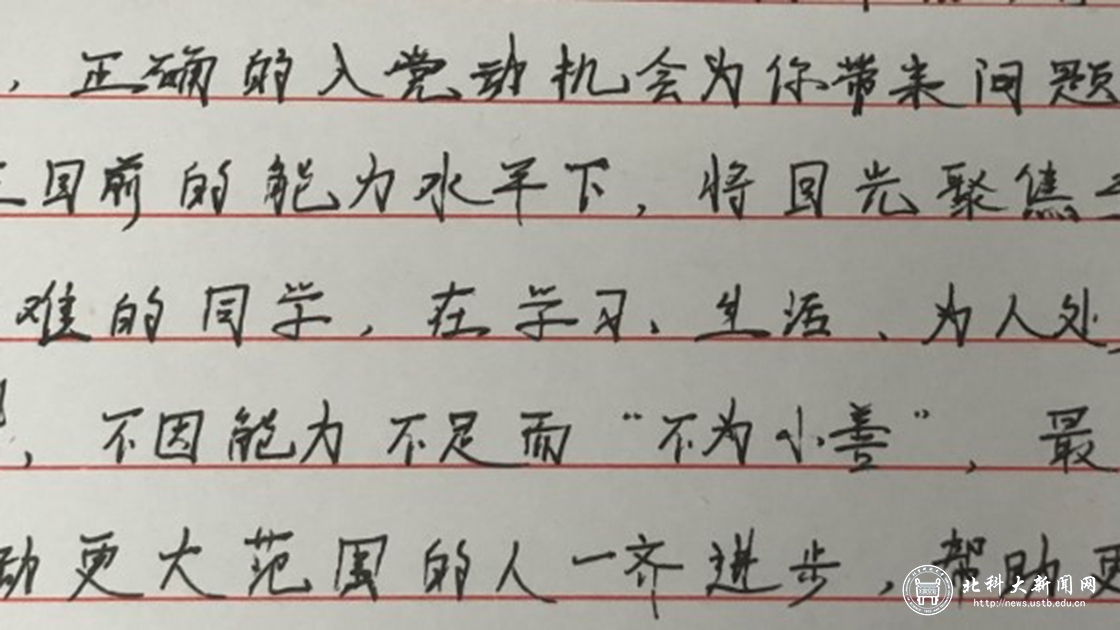 ，正确的入党动机会为你带来问题
目前的能力水平下，将目光聚焦
难的同学，在学习、生活、为人处
，不因能力不足而“不为小善”，最
动更大范围的人一齐进步，帮助更
北科大新闻网
http://news.ustb.edu.cn